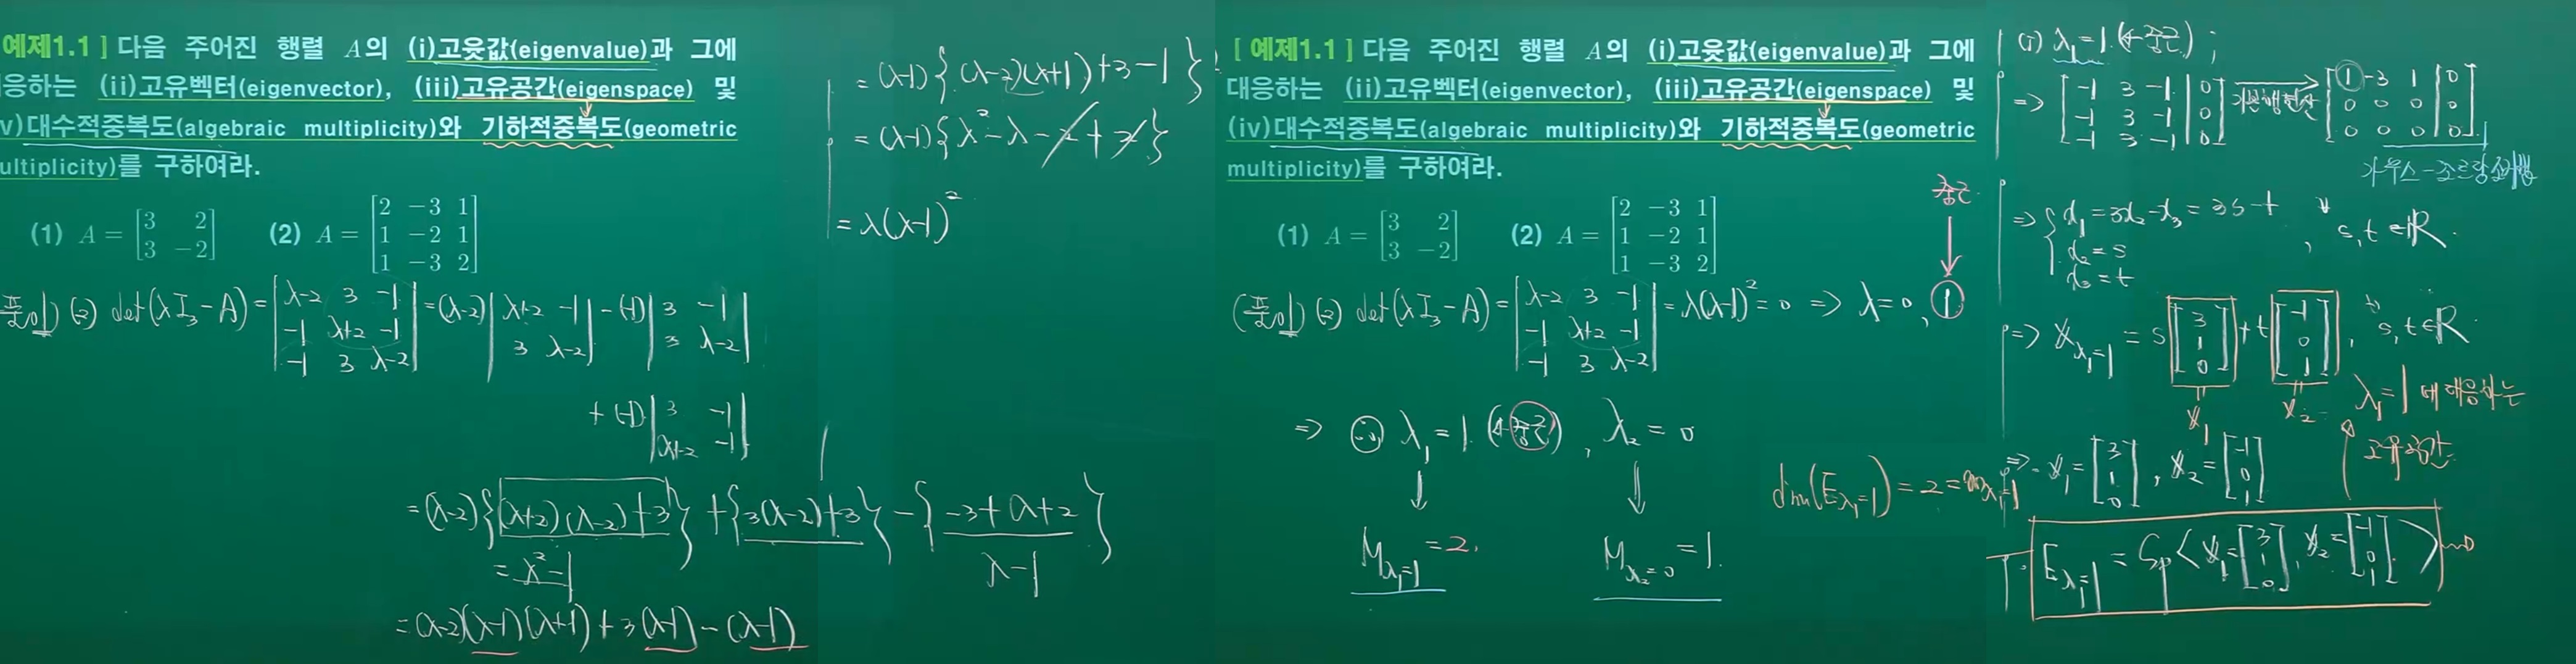 예제1.1 ] 다음 주어진 행렬 A의 (i)고윳값(eigenvalue)과 그에
응하는 (ii)고유벡터(eigenvector), (iii)고유공간(eigenspace) 및
v)대수적중복도(algebraic multiplicity)와 기하적중복도(geometric
ultiplicity)를 구하여라.
(1) A = [3 2; 3 −2] (2) A = [2 −3 1; 1 −2 1; 1 −3 2]
풀이) (2) det(λI₃−A) = |λ-2 3 -1; -1 λ+2 -1; -1 3 λ-2| = (λ-2)|λ+2 -1; 3 λ-2| - (-1)|3 -1; 3 λ-2|
+ (-1)|3 -1; λ+2 -1|
= (λ-2){(λ+2)(λ-2)+3} + {3(λ-2)+3} - {-3+λ+2}
= λ²-1
λ-1
= (λ-2)(λ-1)(λ+1) + 3(λ-1) - (λ-1)
= (λ-1){(λ-2)(λ+1)+3-1}
= (λ-1){λ²-λ-2+2}
= λ(λ-1)²
[ 예제1.1 ] 다음 주어진 행렬 A의 (i)고윳값(eigenvalue)과 그에
대응하는 (ii)고유벡터(eigenvector), (iii)고유공간(eigenspace) 및
(iv)대수적중복도(algebraic multiplicity)와 기하적중복도(geometric
multiplicity)를 구하여라.
중근
(1) A = [3 2; 3 −2] (2) A = [2 −3 1; 1 −2 1; 1 −3 2]
(풀이) (2) det(λI₃−A) = |λ-2 3 -1; -1 λ+2 -1; -1 3 λ-2| = λ(λ-1)² = 0 => λ=0, 1
=> (i) λ₁=1 (←중근), λ₂=0
M_λ₁=1 = 2. M_λ₂=0 = 1.
dim(E_λ₁=1) = 2 = m_λ₁=1
(i) λ₁=1 (←중근) ;
=> [-1 3 -1 | 0; -1 3 -1 | 0; -1 3 -1 | 0] 기본행연산 [1 -3 1 | 0; 0 0 0 | 0; 0 0 0 | 0]
가우스-조르당 소거법
=> { x₁=3x₂-x₃=3s-t
x₂=s
x₃=t
, ∀s,t∈R.
=> x_λ₁=1 = s[3; 1; 0] + t[-1; 0; 1], ∀s,t∈R.
x₁ x₂
λ₁=1 에 대응하는
고유공간
=> x₁=[3; 1; 0], x₂=[-1; 0; 1]
E_λ₁=1 = Sp< x₁=[3; 1; 0], x₂=[-1; 0; 1] >